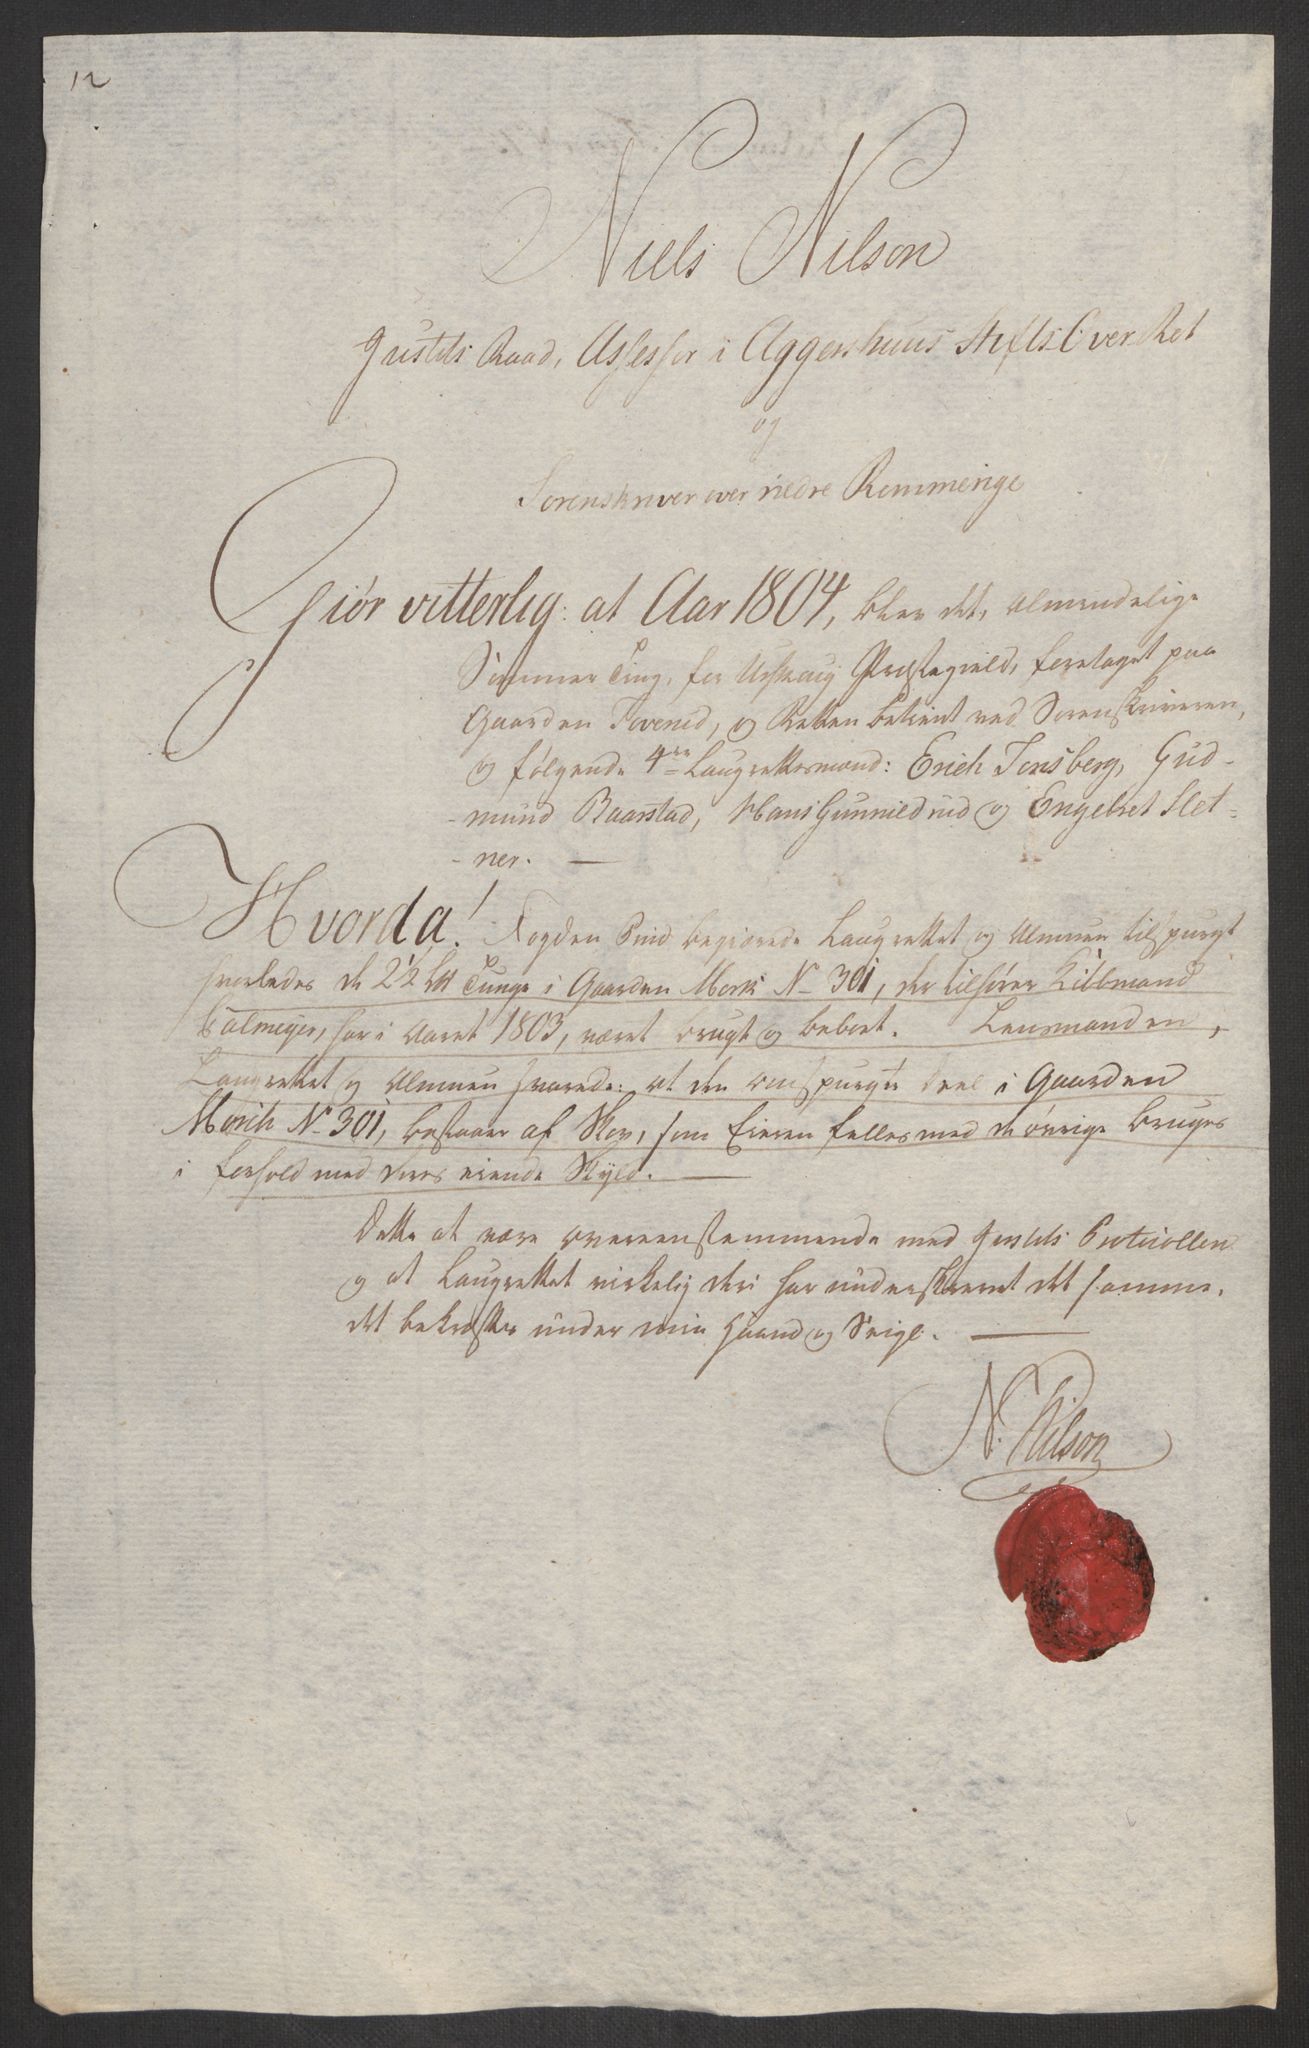 12
Niels Nilson
Justits Raad, Assessor i Aggershuus Stifts Over Ret
og
Sorenskriver over nedre Rommerige
Giör vitterlig: at Aar 1804, blev det almindelige
Sommer Ting, for Urskoug Præstegield, foretaget paa
Gaarden Tevenid, og Retten betient ved Sorenskriveren,
og følgende 4re Laugrettesmænd: Erich Tonsberg, Gud-
-mund Baarstad, Hans Gunnildrud og Engebret Slet-
-ner. —
Hvorda! Fogden Qvid begiærede Laugrettet og Almuen tilspurgt
hvorledes de 2½ Lt Tunge i Gaarden Mork No 301, der tilhører Kiöbmand
Colmeyer, har i Aaret 1803, været brugt og beboet. Lensmanden,
Laugrettet og Almuen svarede: at den omspurgte Deel i Gaarden
Morch No 301, bestaaer af Skov, som Eieren felles med de övrige bruger
i forhold med deres eiende Skyld. —
Dette at være overeenstemmende med Justits Protocollen
og at Laugrettet virkelig deri har underskrevet det samme,
det bekræftes under min Haand og Seigl. —
N. Nilson